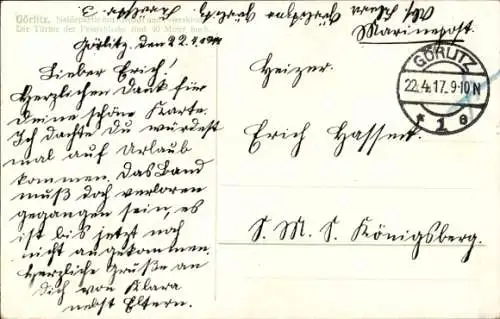 Görlitz,
Die Türme der Peterskirche sind 90 Meter hoch.
Görlitz, den 22.4.
Lieber Erich!
Herzlichen Dank für
deine schöne Karte.
Ich dachte Du würdest
mal auf Urlaub
kommen. Das Band
muß doch verloren
gegangen sein, es
ist bis jetzt noch
nicht angekommen.
Herzliche Grüße an
Dich von Klara
nebst Eltern.
Marinepost.
GÖRLITZ
22.4.17.9-10N
* 1 e
Heizer
Erich Hasseck
S. M. S. Königsberg.